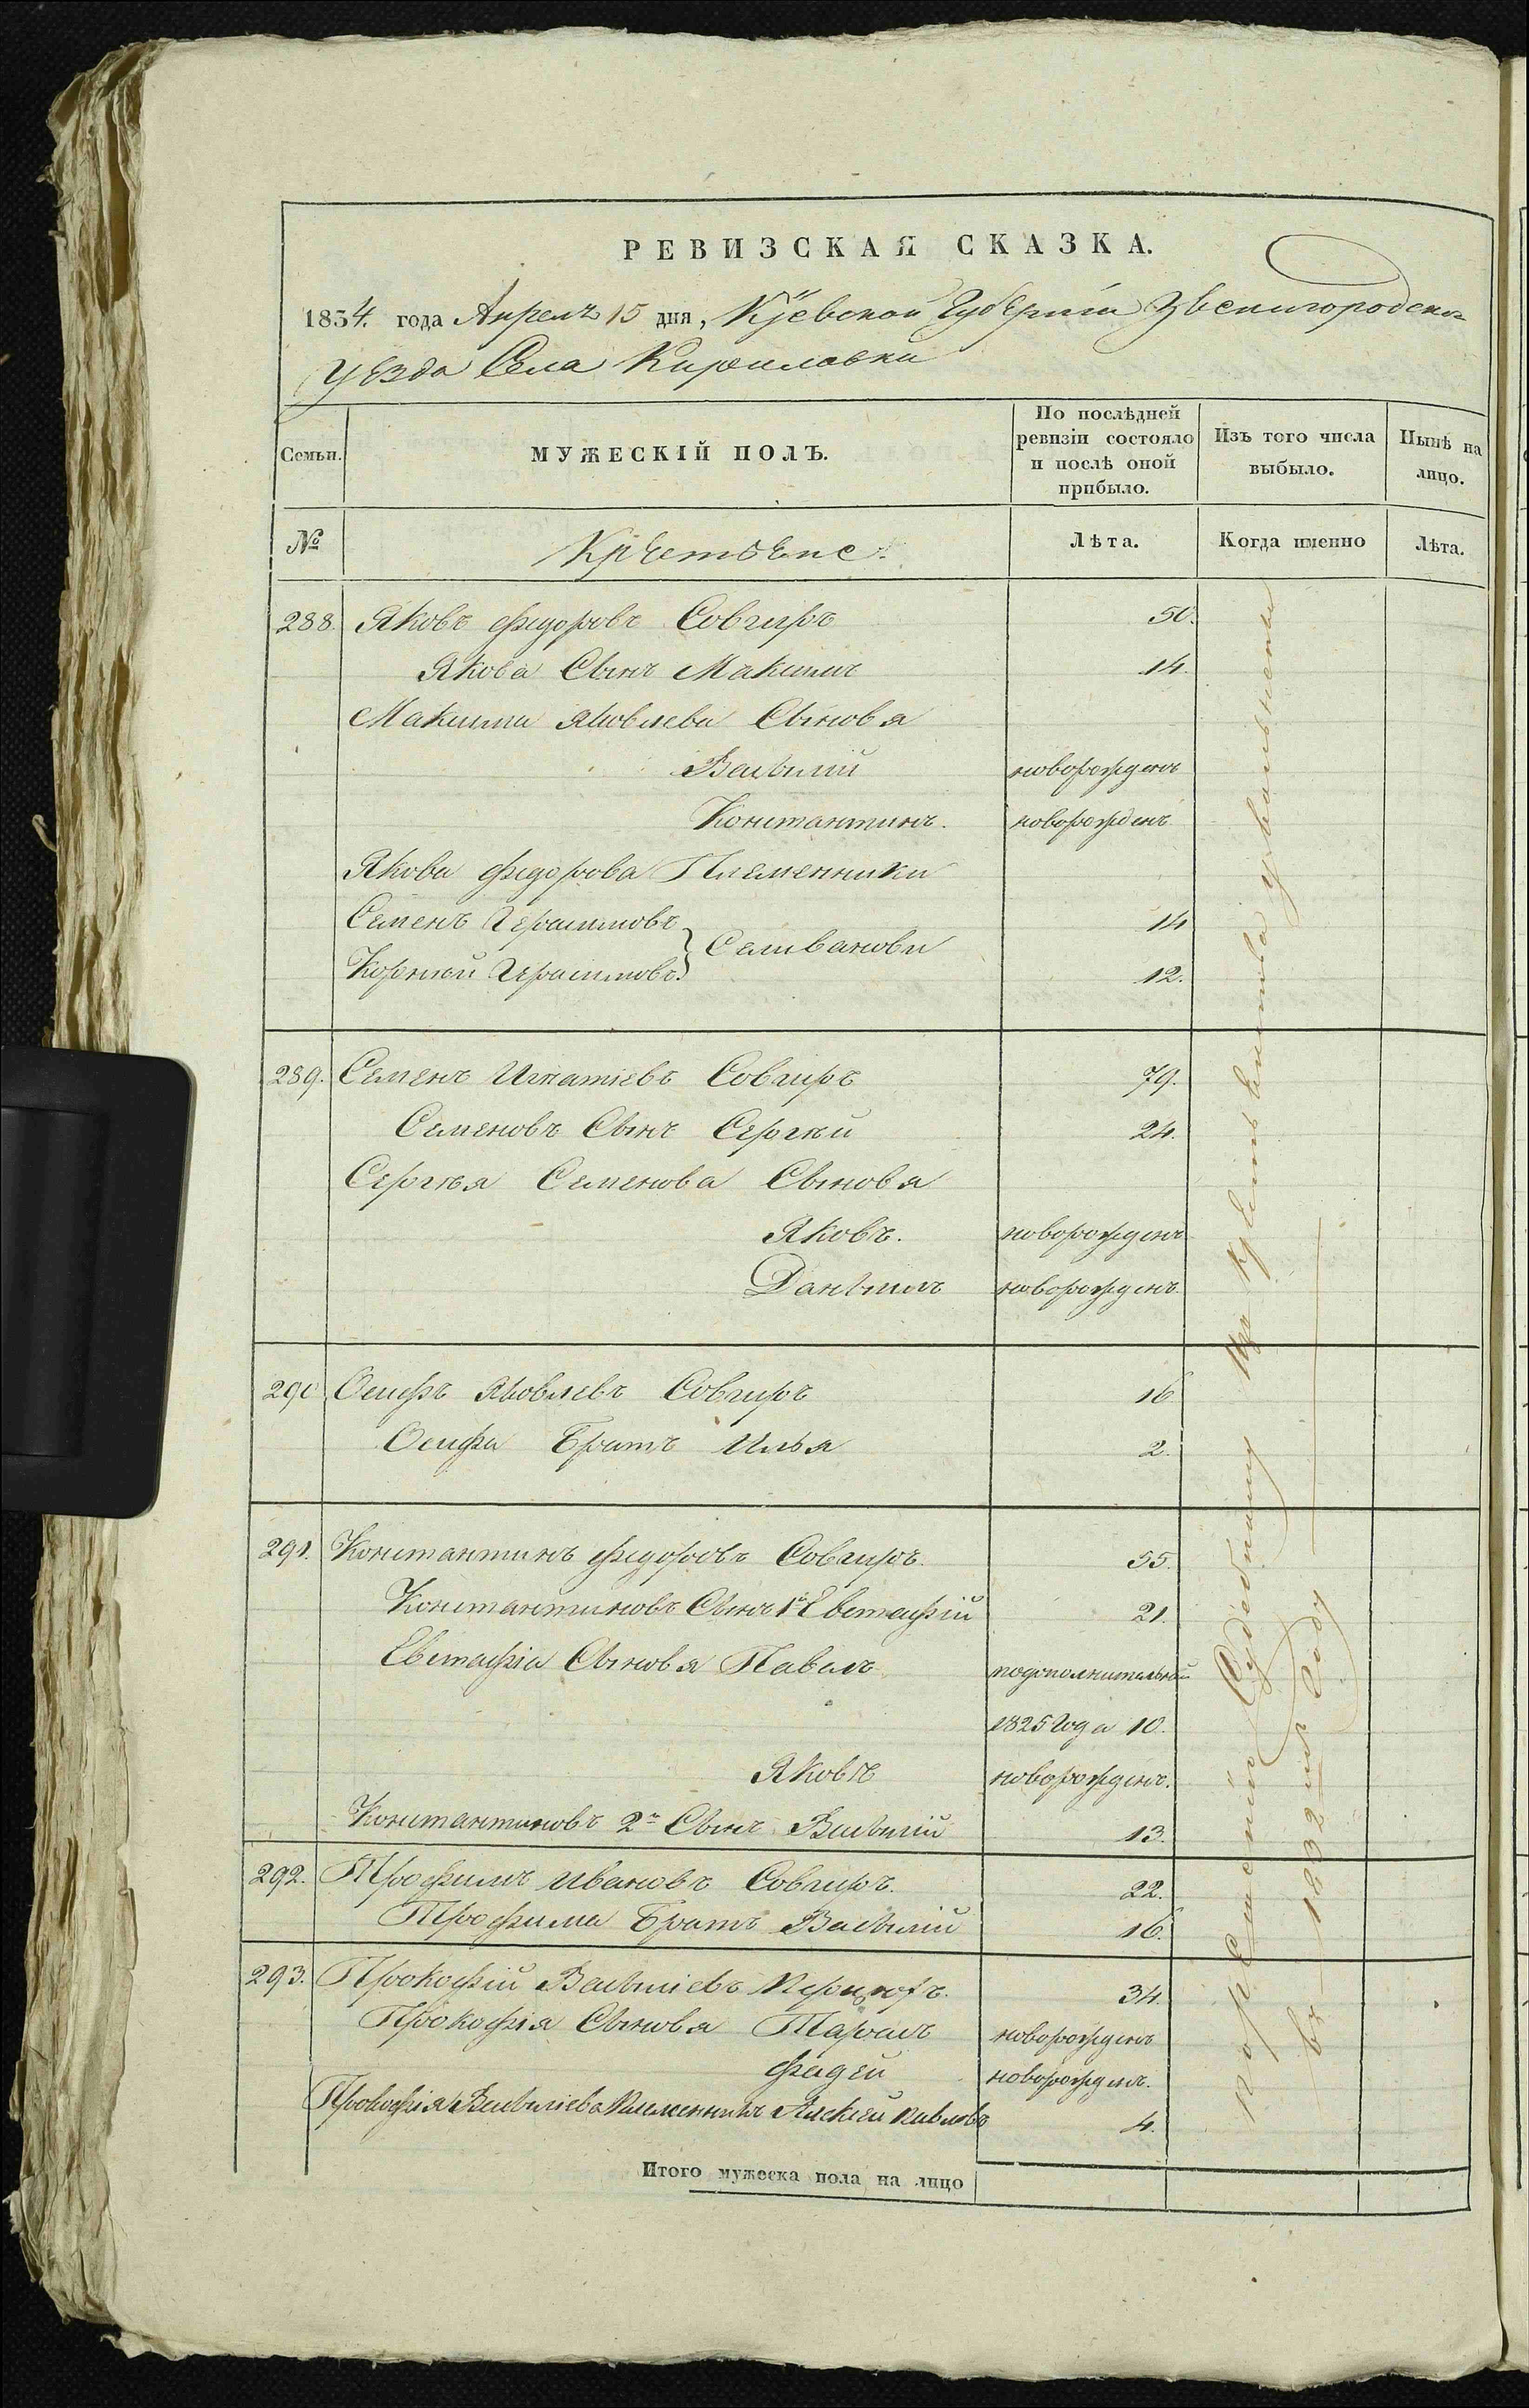 РЕВИЗСКАЯ СКАЗКА.
1834. года Апрелъ 15 дня, Кіевской Губерніи Звенигородска
уезда Села Кириловки
Семьи. МУЖЕСКІЙ ПОЛЪ. По послѣдней ревизіи состояло и послѣ оной прибыло. Изъ того числа выбыло. Нынѣ на лицо.
№ Лѣта. Когда именно Лѣта.
288. Яковъ Федоровъ Совгиръ 50.
Якова Сынъ Максимъ 14.
Максима Яковлева Сыновя
Васылий новорожденъ
Константинъ. новорожденъ
Якова Федорова Племенники
Семенъ Герасимовъ 14
Селиванови
Корний Герасимовъ 12.
289. Семенъ Игнатіевъ Совгиръ 79.
Семеновъ Сынъ Сергѣй 24.
Сергѣя Семенова Сыновя
Яковъ. новорожденъ
Даныилъ новорожденъ.
290 Осифъ Яковлевъ Совгиръ 16
Осифа Братъ Илья 2.
291. Константинъ Федоровъ Совгиръ. 55.
Константиновъ Сынъ 1й Евстафій 21.
Евстафіа Сыновя Павелъ подополнительной
1825 года 10.
Яковъ новорожденъ.
Константиновъ 2й Сынъ Васылий 13.
292. Трофимъ Ивановъ Совгиръ. 22.
Трофима Братъ Васылий 16.
293. Прокофій Васыліевъ 34.
Прокофія Сыновя Тарасъ новорожденъ
Фадей новорожден.
Прокофія Васыліева Племенникъ Алексей Павловъ 4.
Итого мужеска пола на лицо
по решению Судебному Из крепьенства увальнены
въ 1832 м Году